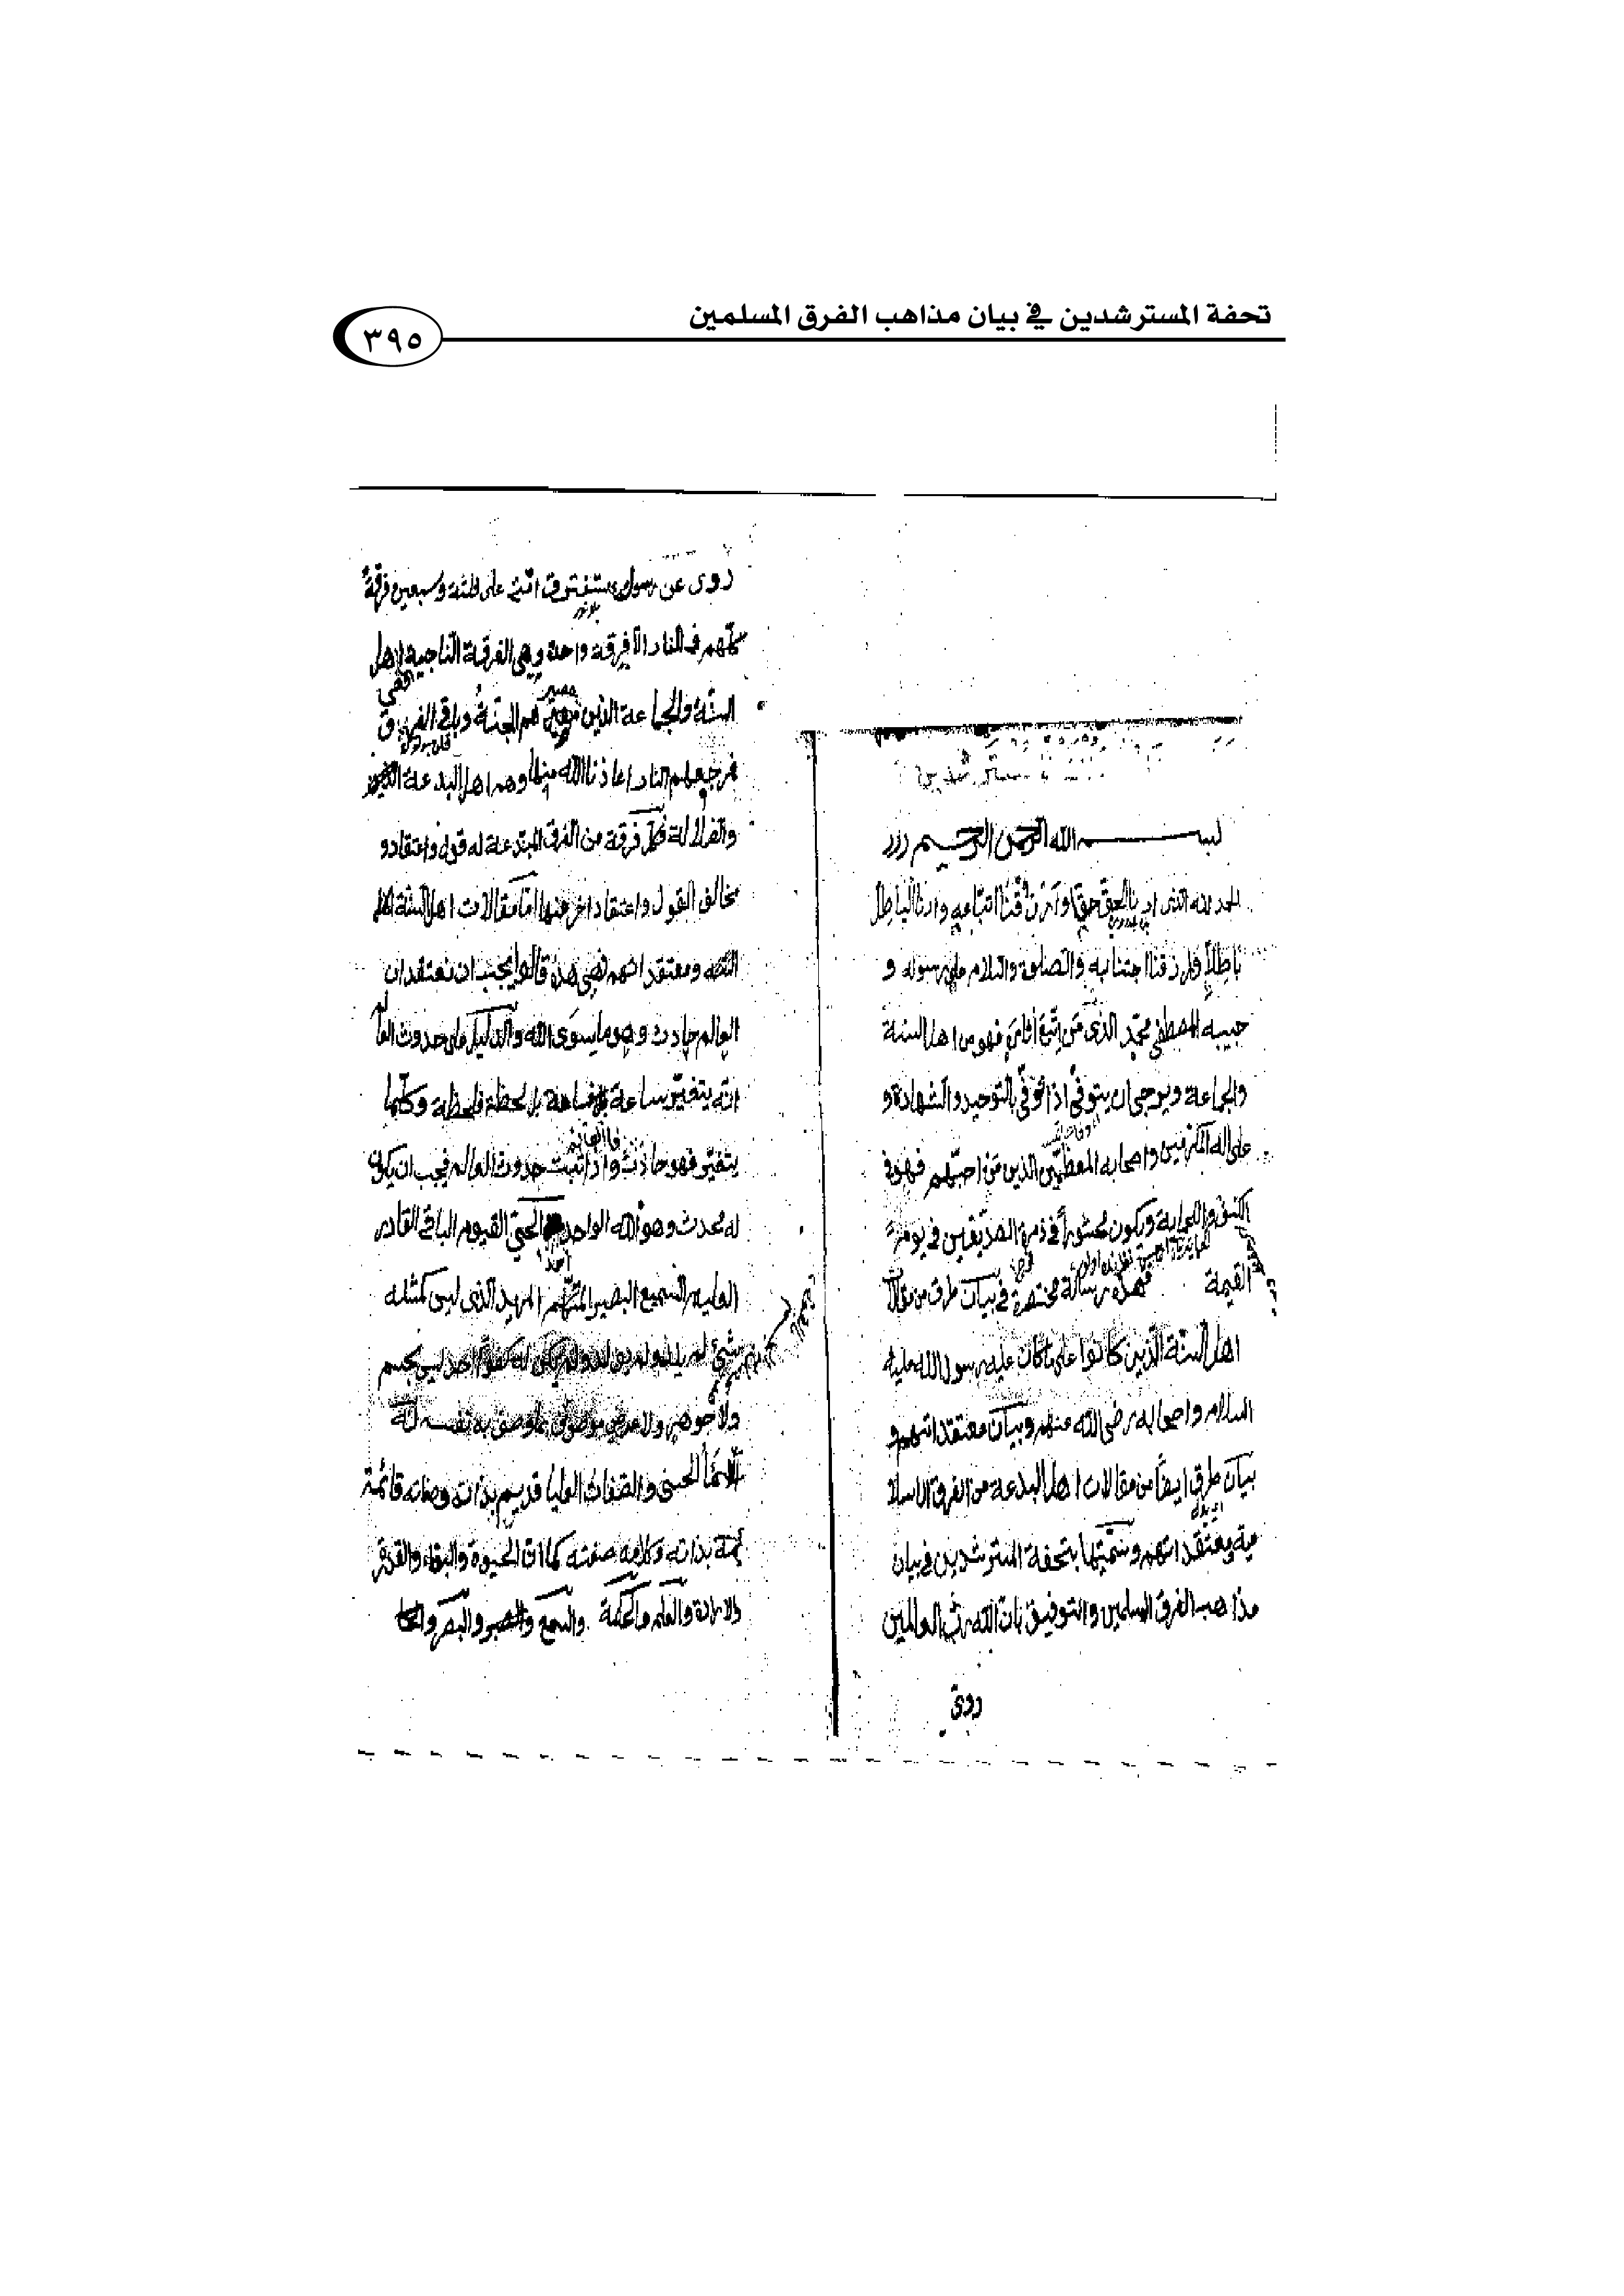 تحفة المسترشدين في بيان مذاهب الفرق المسلمين
٣٩٥
بسم الله الرحمن الرحيم
الحمد لله الذى ارنا الحق حقا وارزقنا اتباعه وارنا الباطل
باطلا وارزقنا اجتنابه والصلوة والسلام على رسوله و
حبيبه المصطفى محمد الذى من اتبع اثاره فهو من اهل السنة
والجماعة ويرجى ان يتوفى اذا توفى بالتوحيد والشهادة و
على اله المكرمين واصحابه المعظمين الذين من احبهم فهو فى
الكنف والحماية ويكون محشورا فى زمرة الصديقين فى يوم
القيمة فهذه رسالة مختصرة فى بيان طرف من مقالا
اهل السنة الذين كانوا على ما كان عليه رسول الله عليه
السلام واصحابه رضى الله عنهم وبيان معتقداتهم و
بيان طرف ايضا من مقالات اهل البدعة من الفرق الاسلا
مية ومعتقداتهم وسميتها بتحفة المسترشدين فى بيان
مذاهب الفرق المسلمين والتوفيق بان الله رب العالمين
روى
روى عن رسول ستفترق امتى على ثلثة وسبعين فرقة
كلهم فى النار الا فرقة واحدة وهى الفرقة الناجية اهل
السنة والجماعة الذين هم الجنة وباقى الفرق
مرجعهم النار اعاذنا الله منها وهم اهل البدعة
والضلالة فكل فرقة من الفرق المبتدعة له قول واعتقاد و
مخالف القول واعتقاد اخر منها اما مقالات اهل السنة
ومعتقداتهم فهى هذه قالوا يجب ان نعتقد ان
العالم حادث وهو ما سوى الله والدليل على حدوث العالم
انه يتغير ساعة فساعة بل لحظة فلحظة وكلما
يتغير فهو حادث واذا ثبت حدوث العالم فيجب ان يكون
له محدث وهو الله الواحد الحى القيوم الباقى القادر
العليم السميع البصير المتكلم المريد الذى ليس كمثله
شئ لم يلد ولم يولد ولم يكن له كفوا احد ليس بجسم
ولا جوهر ولا عرض موصوف بما وصف به نفسه له
الاسماء الحسنى والصفات العليا قديم بذاته وصفاته قائمة
بذاته وكلامه صفته كما ان الحيوة والبقاء والقدرة
والارادة والعلم والحكمة والسمع والبصر